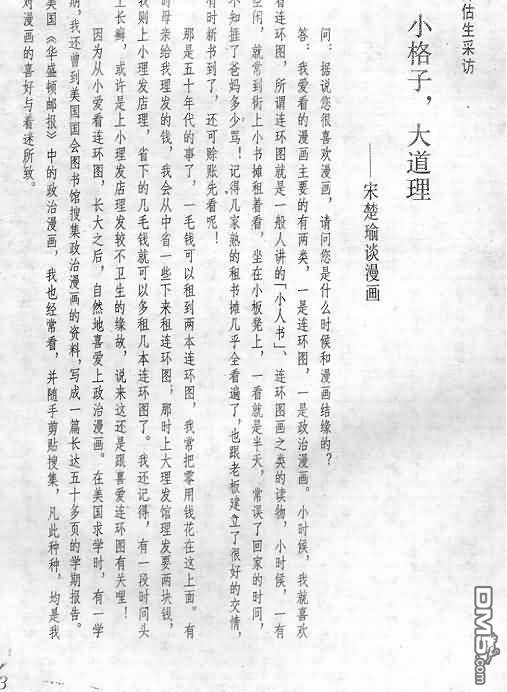 估生采访
小格子，大道理
——宋楚瑜谈漫画
问：据说您很喜欢漫画，请问您是什么时候和漫画结缘的？
答：我爱看的漫画主要的有两类，一是连环图，一是政治漫画。小时候，我就喜欢
看连环图，所谓连环图就是一般人讲的「小人书」、连环图画之类的读物，小时候，一有
空闲，就常到街上小书摊租着看，坐在小板凳上，一看就是半天，常误了回家的时间，
不知捱了爸妈多少骂！记得几家熟的租书摊几乎全看遍了，也跟老板建立了很好的交情，
有时新书到了，还可赊账先看呢！
那是五十年代的事了，一毛钱可以租到两本连环图，我常把零用钱花在这上面。有
时母亲给我理发的钱，我会从中省一些下来租连环图；那时上大理发馆理发要两块钱，
我则上小理发店理，省下的几毛钱就可以多租几本连环图了。我还记得，有一段时间头
上长癣，或许是上小理发店理发较不卫生的缘故，说来这还是跟喜爱连环图有关哩！
因为从小爱看连环图，长大之后，自然地喜爱上政治漫画。在美国求学时，有一学
期，我还曾到美国国会图书馆搜集政治漫画的资料，写成一篇长达五十多页的学期报告。
美国《华盛顿邮报》中的政治漫画，我也经常看，并随手剪贴搜集，凡此种种，均是我
对漫画的喜好与着迷所致。
3
DM5.com